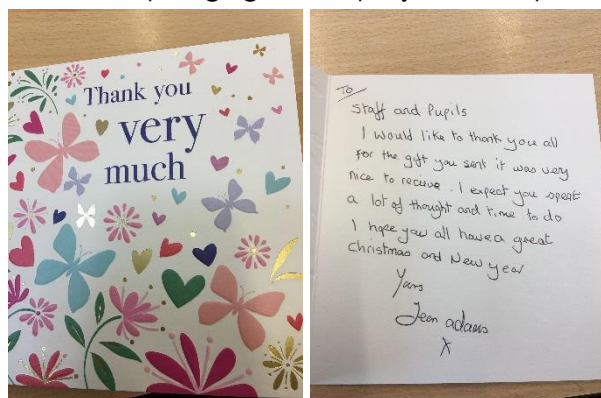 Thank you
very
much
To
Staff and Pupils
I would like to thank you all
for the gift you sent it was very
nice to recieve. I expect you spent
a lot of thought and time to do
I hope you all have a great
christmas and New year
Yours
Jean adams
X